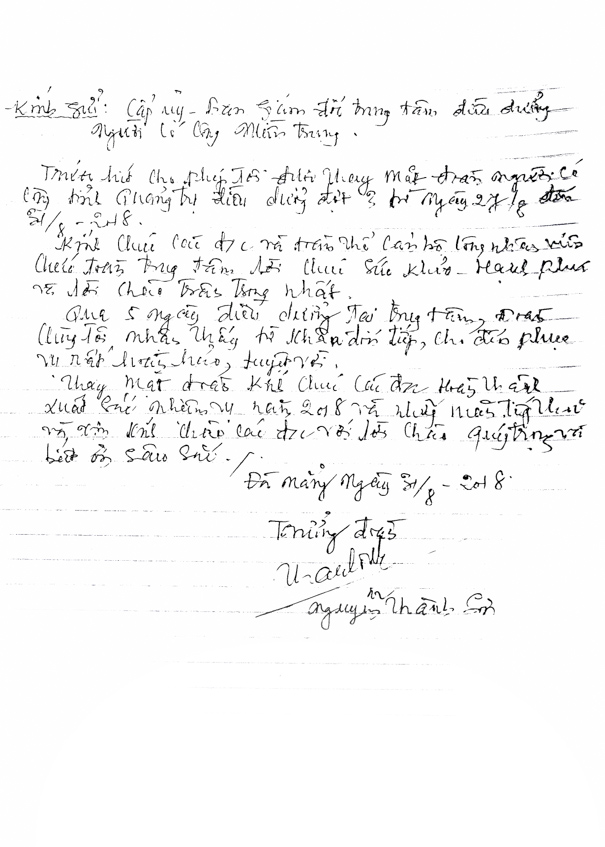 - Kính gửi: Cấp ủy - Ban giám đốc trung tâm điều dưỡng
Người có công Miền Trung.
Trước hết cho phép tôi được thay mặt đoàn người có
công tỉnh Quảng Trị điều dưỡng đợt từ ngày 27/8 đến
31/8 - 2018.
Kính chúc các đ/c và toàn thể cán bộ công nhân viên
chức toàn trung tâm lời chúc sức khỏe - Hạnh phúc
và lời chào trân trọng nhất.
Qua 5 ngày điều dưỡng tại trung tâm, đoàn
chúng tôi nhận thấy từ khâu đón tiếp, cho đến phục
vụ rất hoàn hảo, tuyệt vời.
Thay mặt đoàn kính chúc các đ/c hoàn thành
xuất sắc nhiệm vụ năm 2018 và những năm tiếp theo
và xin kính chào các đ/c với lời chào quý trọng và
biết ơn sâu sắc./.
Đà Nẵng ngày 31/8 - 2018
Trưởng đoàn
Nguyễn Thành Sơn